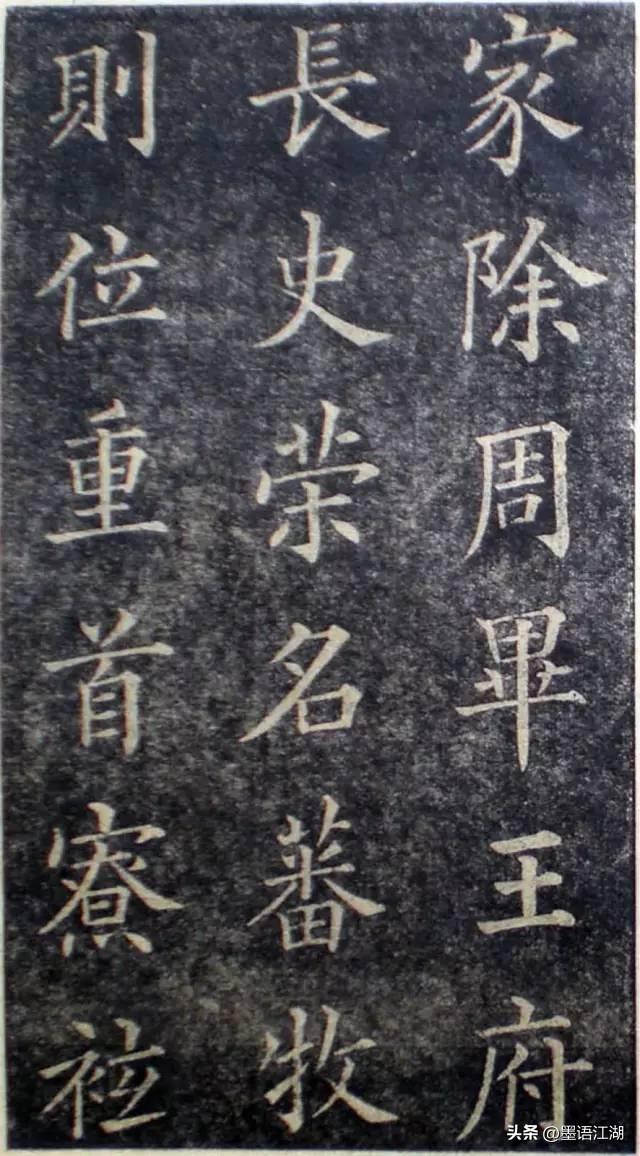 家除周畢王府
長史荣名蕃牧
則位重首寮袨
头条 @墨语江湖